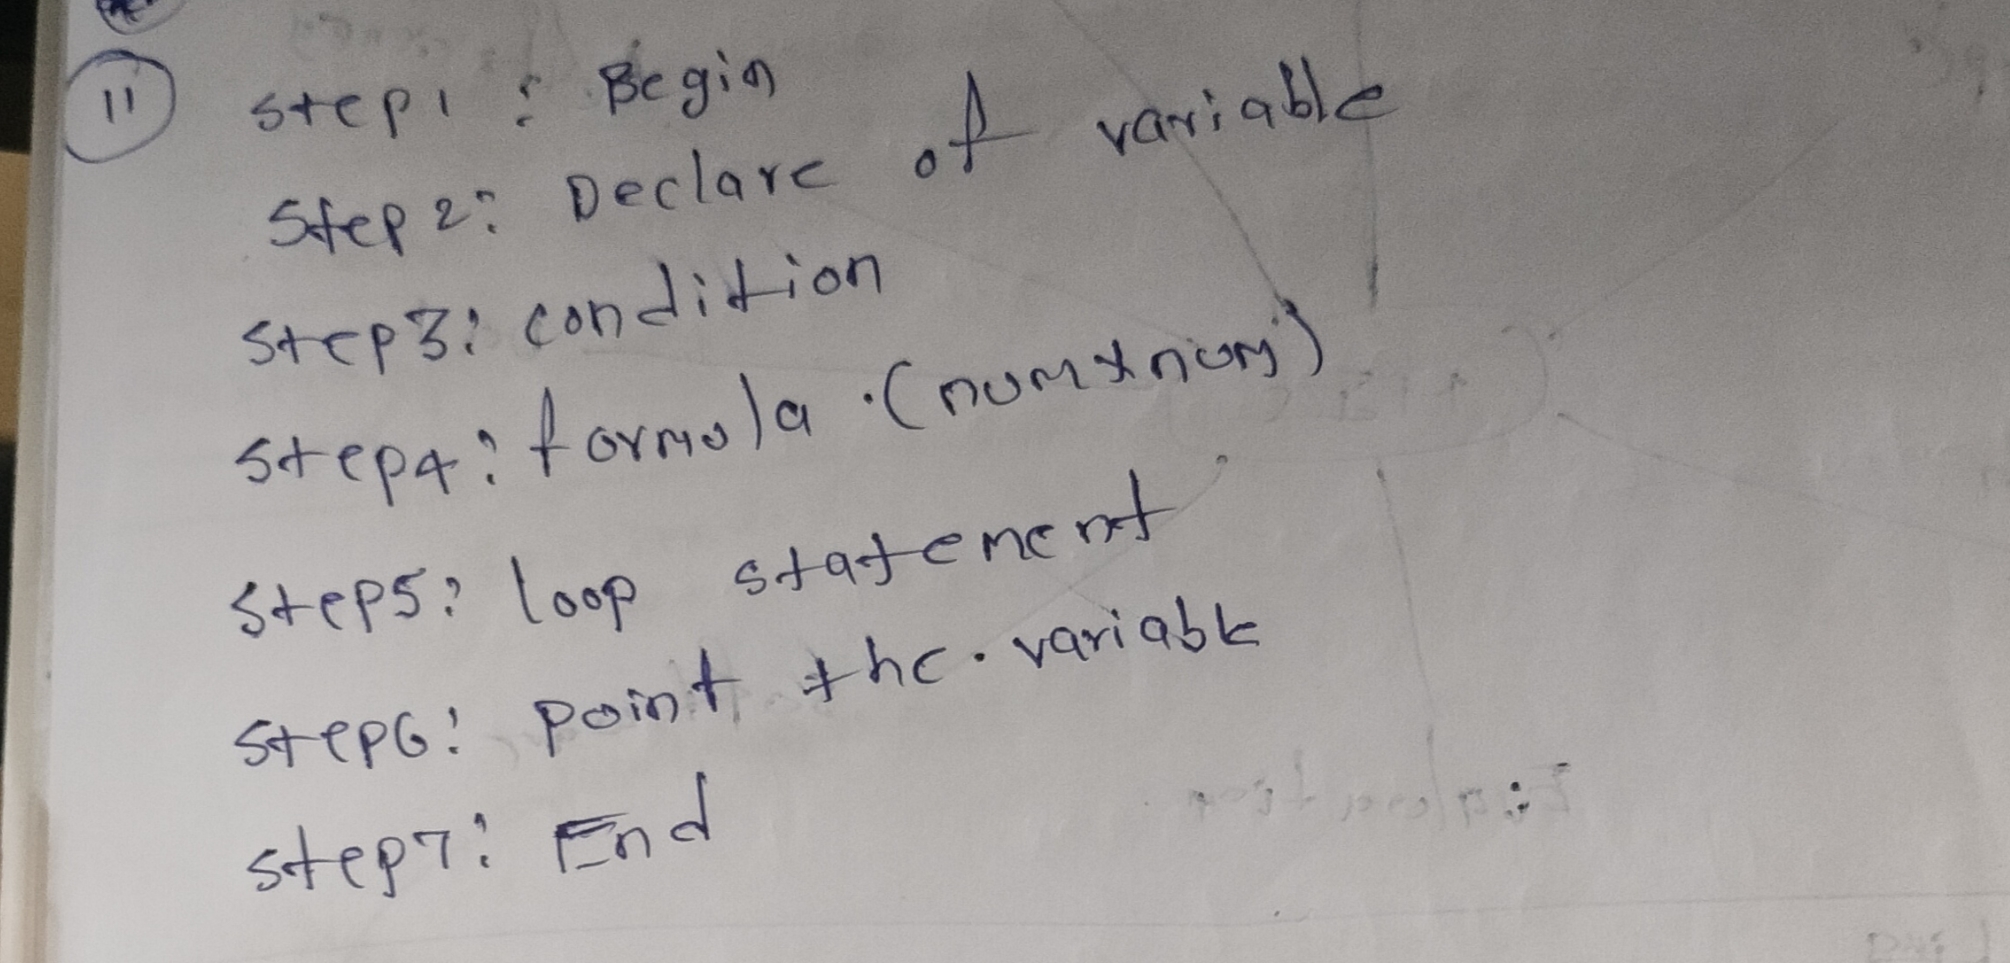 11 step1 : Begin
Step2: Declare of variable
step3: condition
step4: formula (num*num)
step5: loop statement
step6: point the variable
step7: End